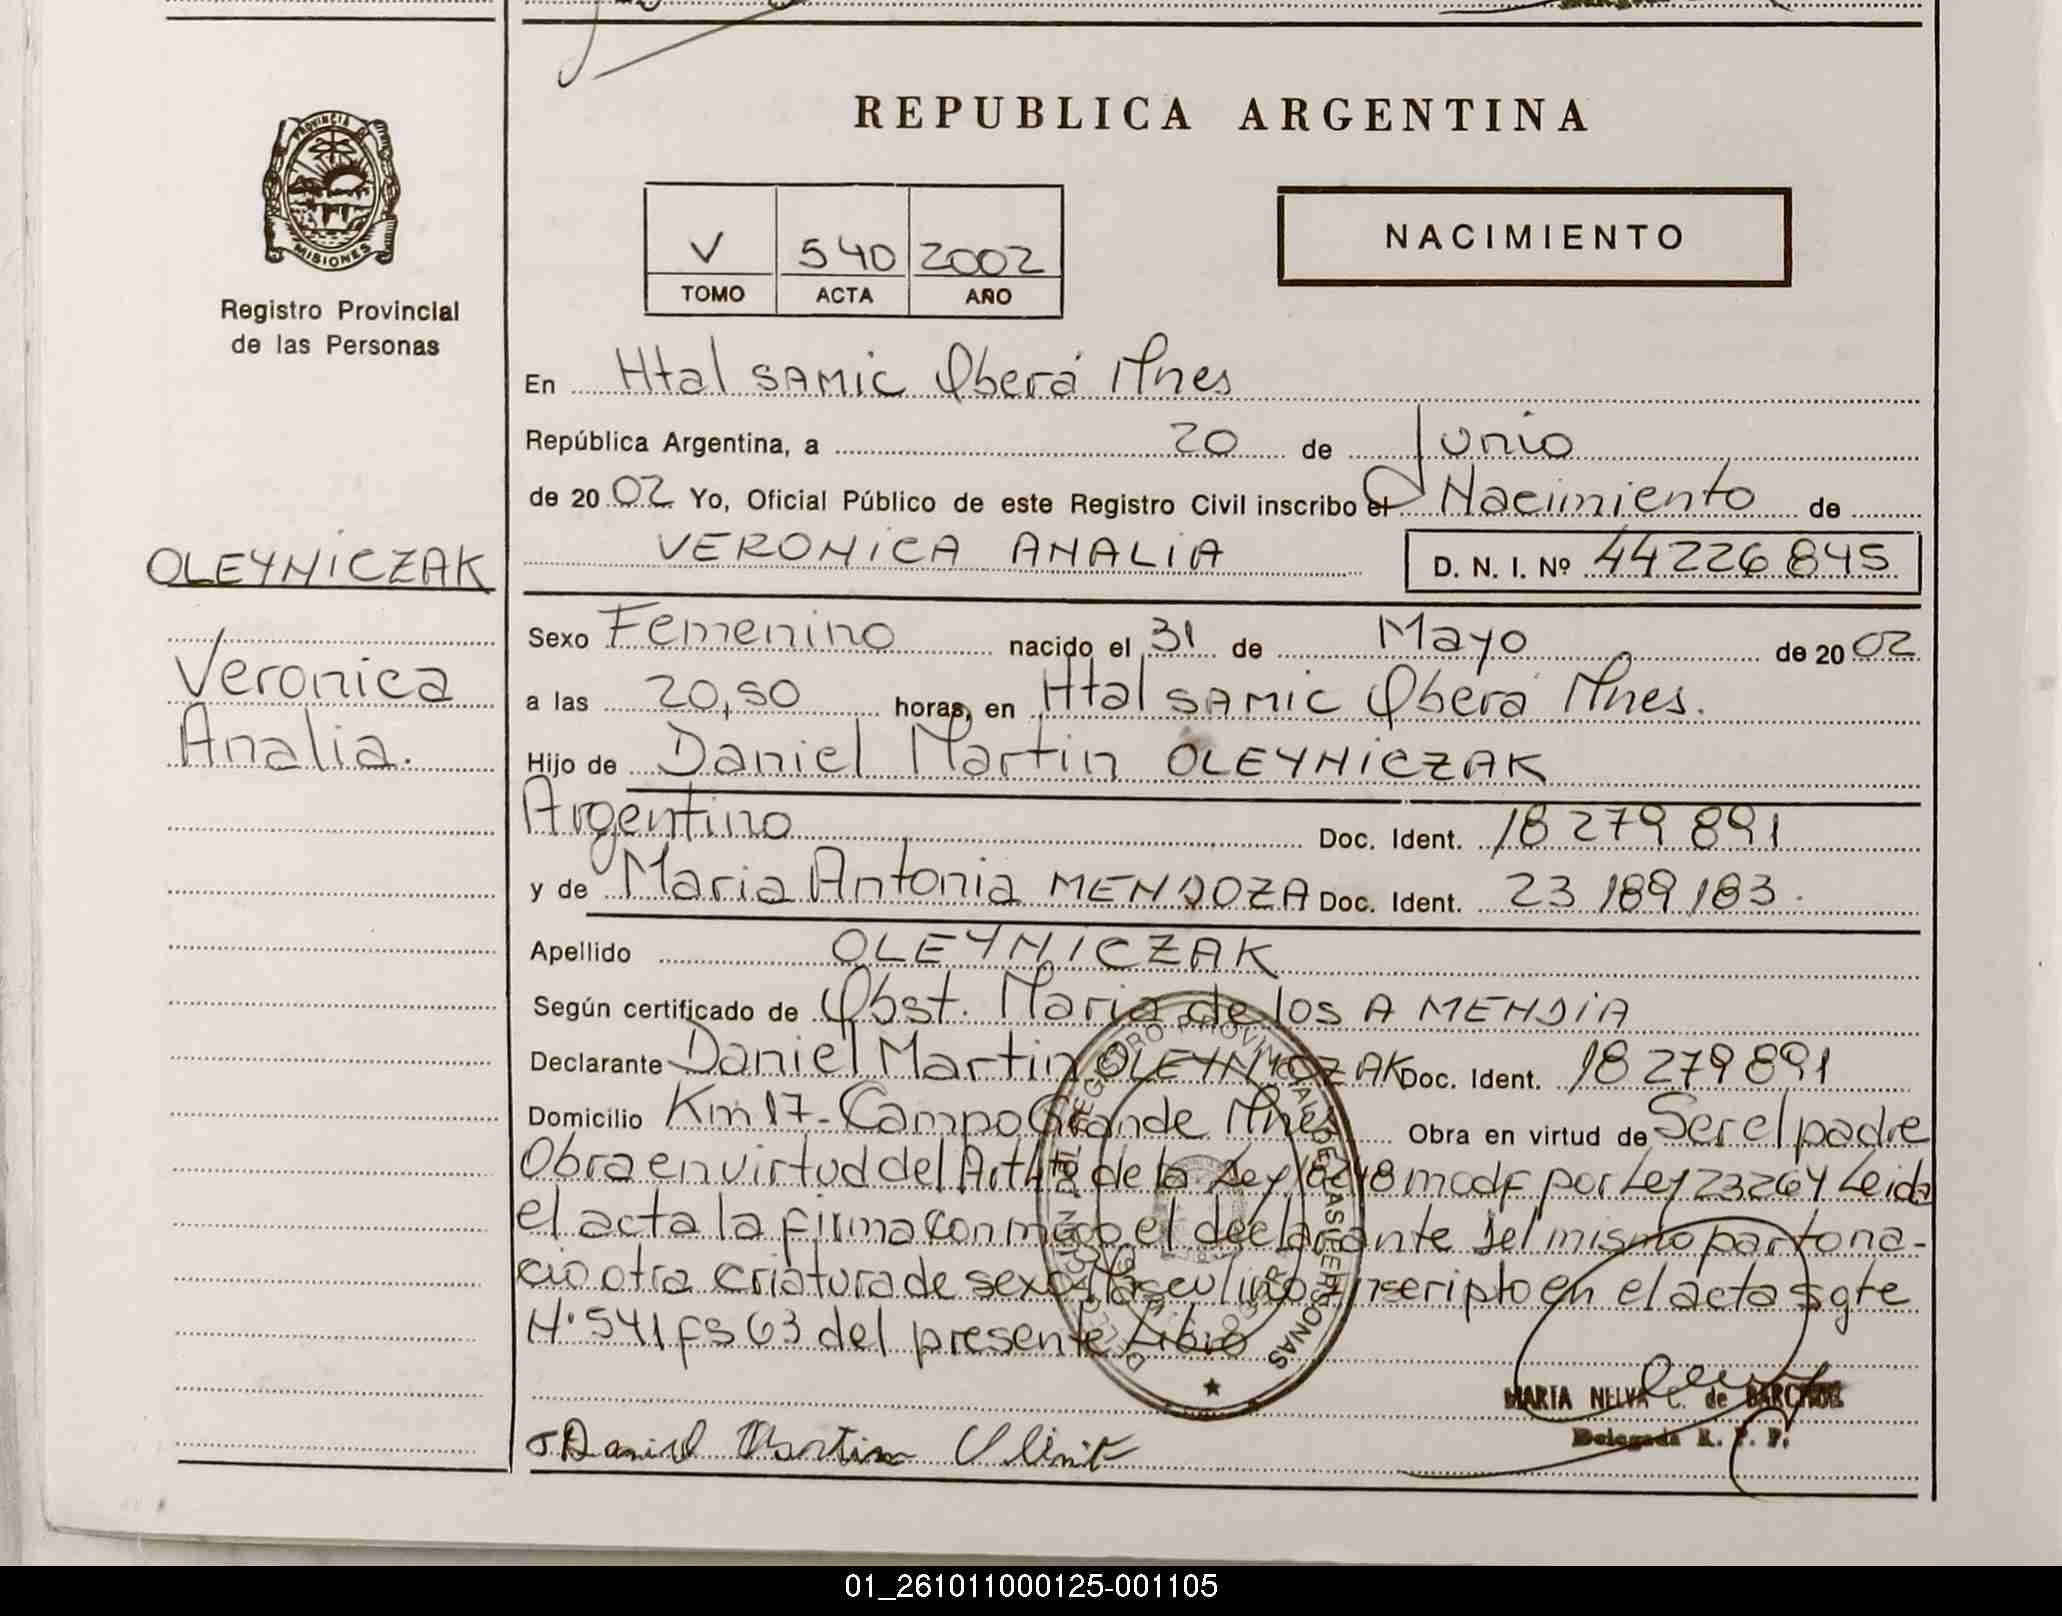 REPUBLICA ARGENTINA
PROVINCIA DE
MISIONES
Registro Provincial
de las Personas
V 540 2002
TOMO ACTA AÑO
NACIMIENTO
En Htal SAMIC Oberá Mnes
República Argentina, a 20 de Junio
de 2002 Yo, Oficial Público de este Registro Civil inscribo el Nacimiento de
VERONICA ANALIA D. N. I. Nº 44226845
OLEYNICZAK
Veronica
Analia.
Sexo Femenino nacido el 31 de Mayo de 2002
a las 20,50 horas, en Htal SAMIC Oberá Mnes.
Hijo de Daniel Martin OLEYNICZAK
Argentino Doc. Ident. 18 279 891
y de Maria Antonia MENDOZA Doc. Ident. 23 189 183.
Apellido OLEYNICZAK
Según certificado de Obst. Maria de los A MENDIA
Declarante Daniel Martin OLEYNICZAK Doc. Ident. 18 279 891
Domicilio Km 17 - Campo Grande Mnes Obra en virtud de Ser el padre
Obra en virtud del Art de la Ley 18248 modf por Ley 23264 Leida
el acta la firma con migo el declarante Del mismo parto na-
cio otra criatura de sexo Masculino inscripto en el acta sgte
N° 541 fs 63 del presente Libro
REGISTRO PROVINCIAL DE LAS PERSONAS
MARIA NELVA C. de
Delegada R. P. P.
Daniel Martin
01_261011000125-001105